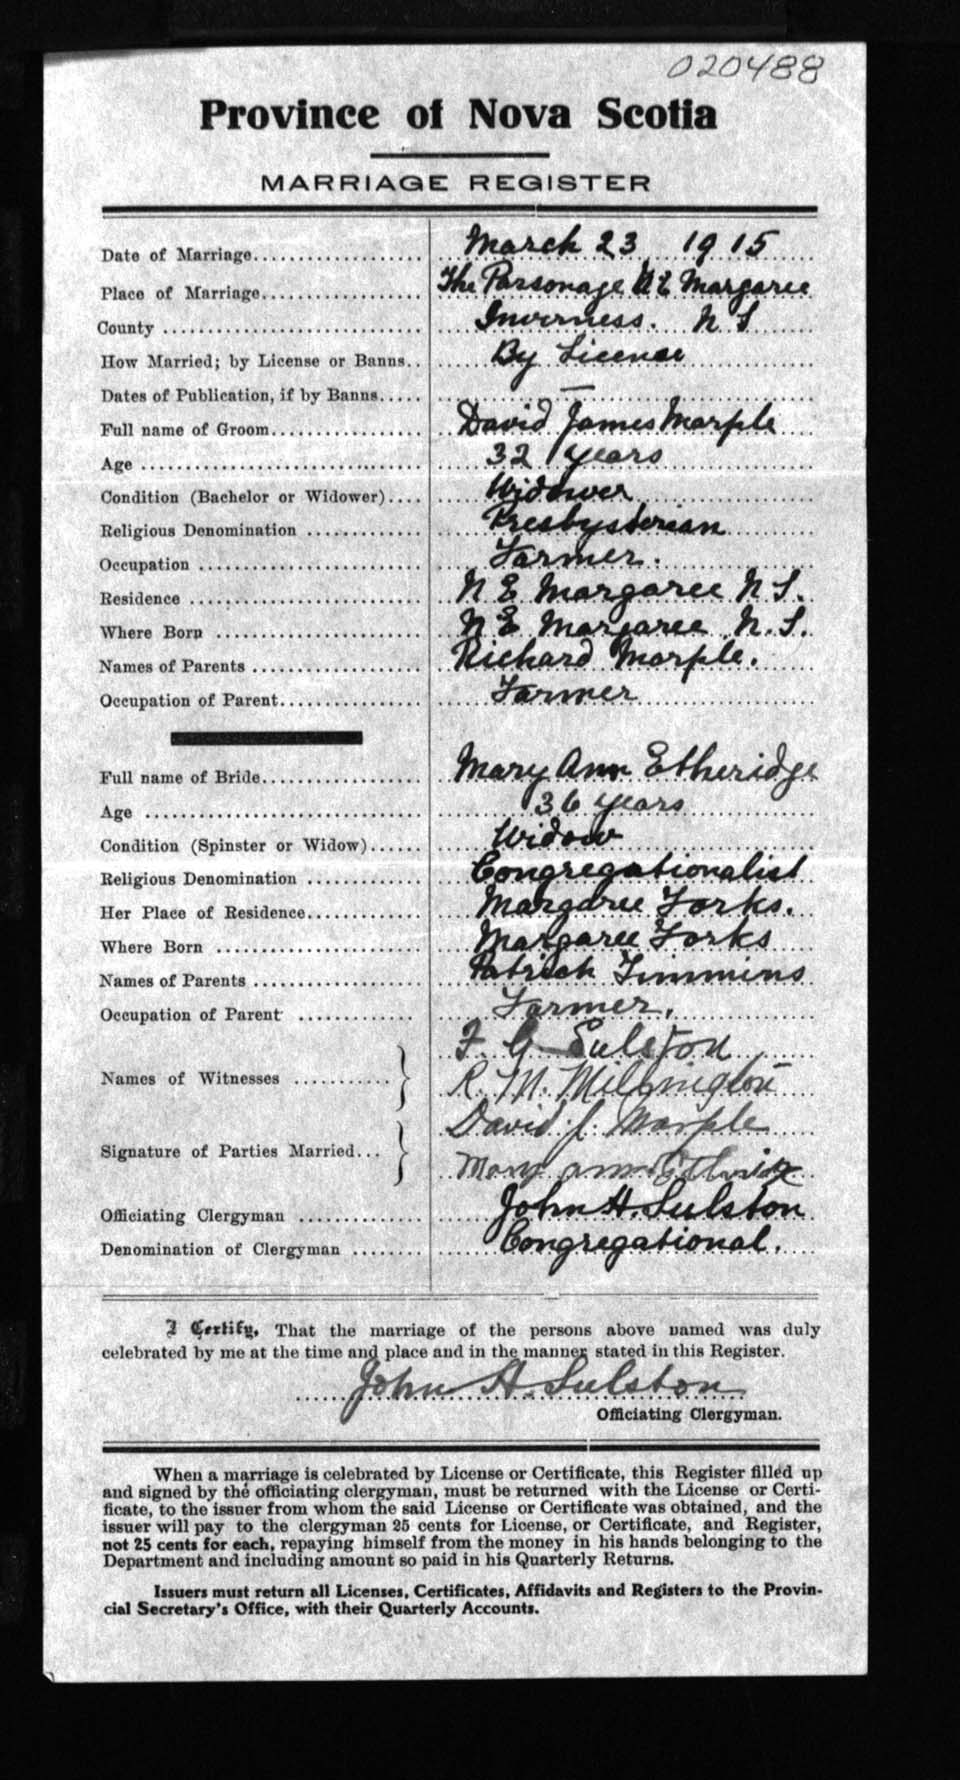 020488
Province of Nova Scotia
MARRIAGE REGISTER
Date of Marriage.................... March 23 1915
Place of Marriage.................... The Parsonage N E Margaree
County .................... Inverness. N S
How Married; by License or Banns.. By License
Dates of Publication, if by Banns..... —
Full name of Groom.................. David James Marple
Age .................... 32 years
Condition (Bachelor or Widower).... Widower
Religious Denomination .............. Presbysterian
Occupation .................... Farmer.
Residence .................... N E Margaree N S.
Where Born .................... N E Margaree N. S.
Names of Parents .................... Richard Marple.
Occupation of Parent................. Farmer
Full name of Bride................... Mary Ann Etheridge
Age .................... 36 years
Condition (Spinster or Widow)...... Widow
Religious Denomination .............. Congregationalist
Her Place of Residence.............. Margaree Forks.
Where Born .................... Margaree Forks
Names of Parents .................... Patrick Timmins
Occupation of Parent .............. Farmer.
F. G Sulston
Names of Witnesses ........... R. M. Millington
David J. Marple
Signature of Parties Married... Mary ann
Officiating Clergyman .............. John H. Sulston
Denomination of Clergyman ........ Congregational.
I Certify, That the marriage of the persons above named was duly
celebrated by me at the time and place and in the manner stated in this Register.
John H. Sulston
Officiating Clergyman.
When a marriage is celebrated by License or Certificate, this Register filled up
and signed by the officiating clergyman, must be returned with the License or Certi-
ficate, to the issuer from whom the said License or Certificate was obtained, and the
issuer will pay to the clergyman 25 cents for License, or Certificate, and Register,
not 25 cents for each, repaying himself from the money in his hands belonging to the
Department and including amount so paid in his Quarterly Returns.
Issuers must return all Licenses, Certificates, Affidavits and Registers to the Provin-
cial Secretary's Office, with their Quarterly Accounts.